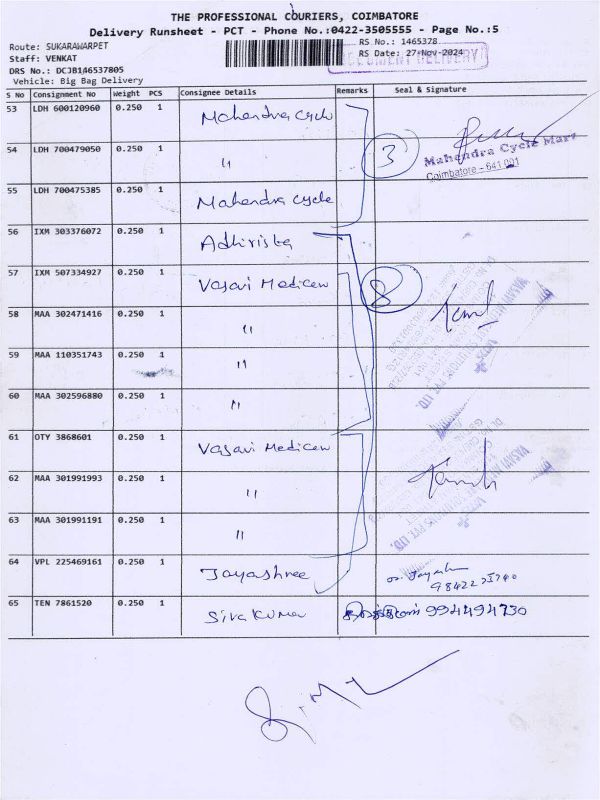 THE PROFESSIONAL COURIERS, COIMBATORE
Delivery Runsheet - PCT - Phone No.:0422-3505555 - Page No.:5
Route: SUKARAWARPET
RS No.: 1465378
Staff: VENKAT
RS Date: 27-Nov-2024
DRS No.: DCJB146537805
DOCUMENT DELIVERY
Vehicle: Big Bag Delivery
S No Consignment No Weight PCS Consignee Details Remarks Seal & Signature
53 LDH 600120960 0.250 1 Mahendra Cycle
54 LDH 700479050 0.250 1 〃 3
Mahendra Cycle Mart
Coimbatore - 641 001
55 LDH 700475385 0.250 1 Mahendra Cycle
56 IXM 303376072 0.250 1 Adhirista
57 IXM 507334927 0.250 1 Vasavi Medicen 8
58 MAA 302471416 0.250 1 〃
59 MAA 110351743 0.250 1 〃
60 MAA 302596880 0.250 1 〃
61 OTY 3868601 0.250 1 Vasavi Medicen
62 MAA 301991993 0.250 1 〃
63 MAA 301991191 0.250 1 〃
64 VPL 225469161 0.250 1 Jayashree
65 TEN 7861520 0.250 1 Sivakumar 994494730